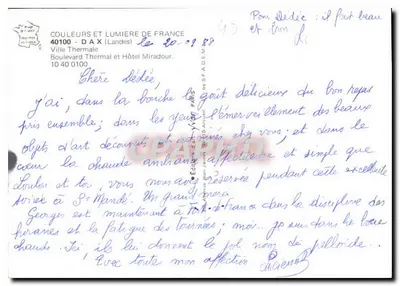 Pour Dédée : il fait beau
et bon
COULEURS ET LUMIERE DE FRANCE
40100 - DAX (Landes) le 20-09-88
Ville Thermale
Boulevard Thermal et Hôtel Miradour.
10 40 0100
Chère Dédée,
J'ai, dans la bouche le goût délicieux du bon repas
pris ensemble ; dans les yeux l'émerveillement des beaux
objets d'art découverts chez vous ; et dans le
cœur la chaude ambiance affectueuse et simple que
Loulou et toi, vous nous avez réservée pendant cette excellente
soirée à St Mandé. Un grand merci
Georges est maintenant à Fort-de-France dans la discipline des
horaires et la fatigue des tournées ; moi.. je suis dans les boues
chaudes. Ici, ils lui donnent le joli nom de pelloïde..
Avec toute mon affection